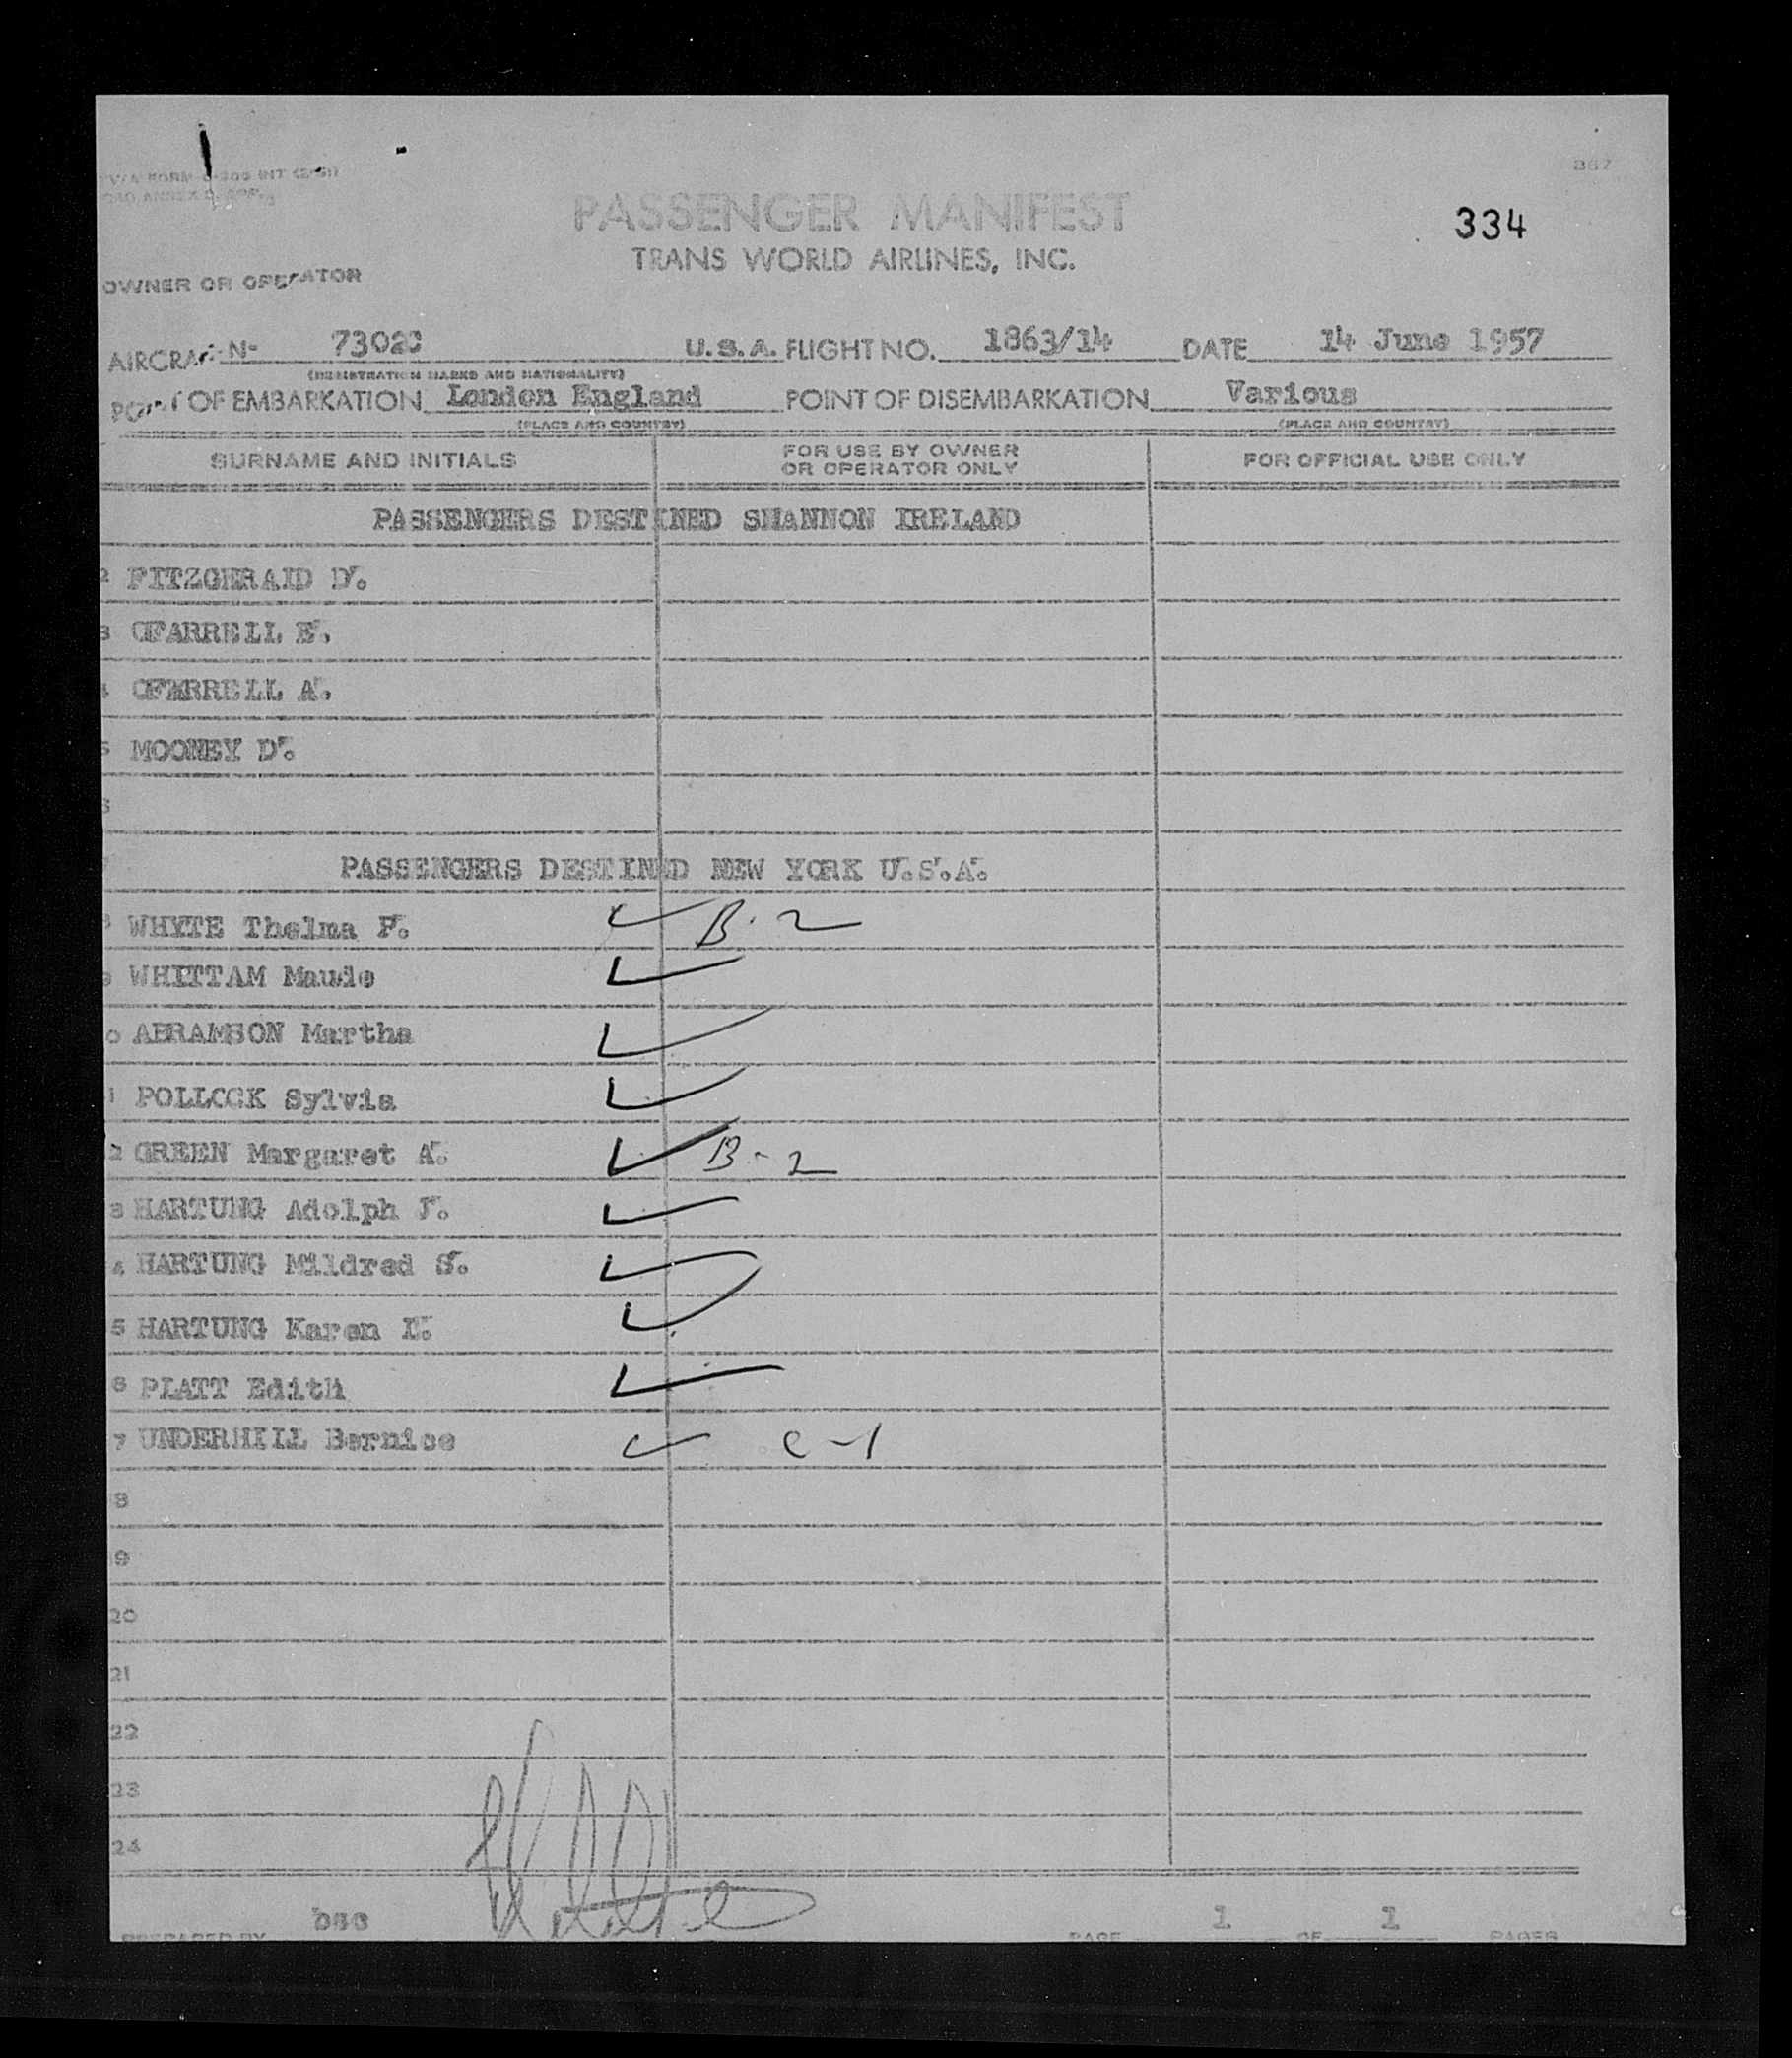 867
TWA FORM
PASSENGER MANIFEST
334
TRANS WORLD AIRLINES, INC.
OWNER OR OPERATOR
AIRCRAFT No 7302 U.S.A. FLIGHT NO. 1863/14 DATE 14 June 1957
(REGISTRATION MARKS AND NATIONALITY)
POINT OF EMBARKATION London England POINT OF DISEMBARKATION Various
(PLACE AND COUNTRY) (PLACE AND COUNTRY)
SURNAME AND INITIALS FOR USE BY OWNER OR OPERATOR ONLY FOR OFFICIAL USE ONLY
PASSENGERS DESTINED SHANNON IRELAND
2 FITZGERALD D.
3 OFARRELL E.
4 OFARRELL A.
5 MOONEY D.
6
PASSENGERS DESTINED NEW YORK U.S.A.
8 WHYTE Thelma F. B-2
9 WHITTAM Maude
0 ABRAMSON Martha
1 POLLOCK Sylvia
2 GREEN Margaret A. B-2
3 HARTUNG Adolph J.
4 HARTUNG Mildred S.
5 HARTUNG Karen L.
6 PLATT Edith
7 UNDERHILL Bernice C-1
8
9
20
21
22
23
24
PREPARED BY PAGE 1 OF 1 PAGES